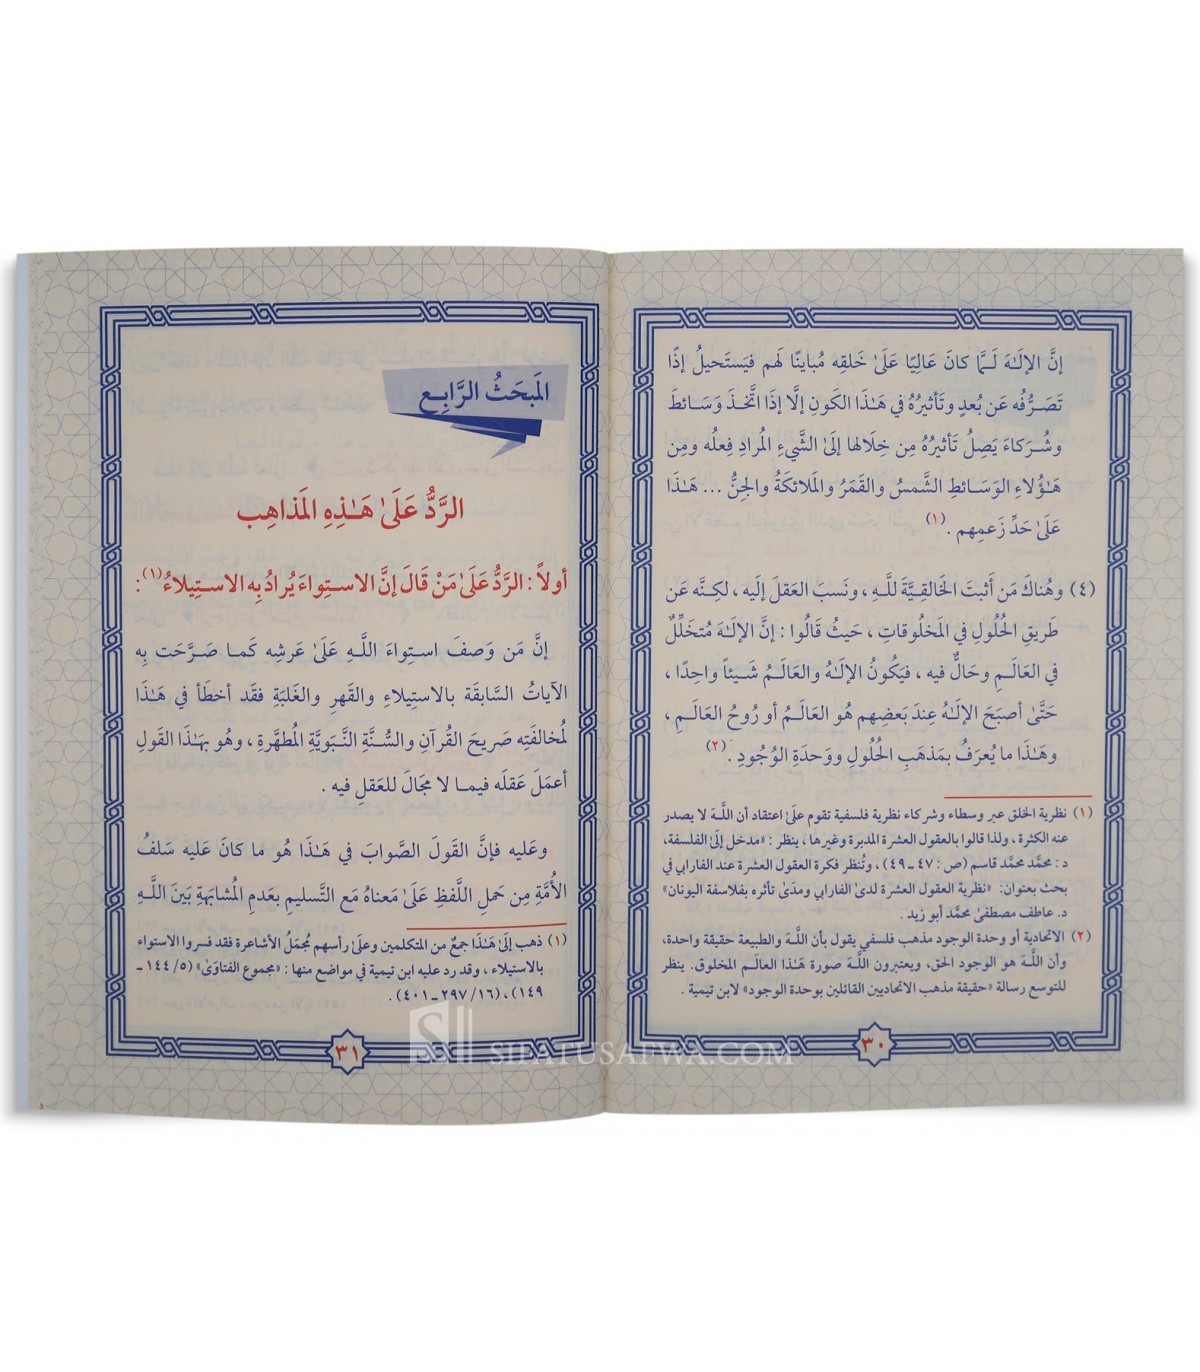 إنَّ الإلَـٰهَ لَـمَّا كانَ عَالِيًا عَلَىٰ خَلقِه مُباينًا لَهم فيَستَحيلُ إذًا
تَصَرُّفُه عَن بُعدٍ وتَأثيرُهُ في هَـٰذَا الكَونِ إلَّا إذَا اتَّخَذَ وَسَائطَ
وشُرَكاءَ يَصِلُ تَأثيرُهُ مِن خِلَالها إلَىٰ الشَّيءِ المُرادِ فِعلُه ومِن
هَـٰؤُلاءِ الوَسَائطِ الشَّمسُ والقَمَرُ والمَلائكَةُ والجِنُّ ... هَـٰذَا
عَلَىٰ حَدِّ زَعمِهم . (١)
(٤) وهُناكَ مَن أَثبتَ الخَالقِيَّةَ للَّـهِ ، ونَسبَ العَقلَ إلَيه ، لكِنَّه عَن
طَريقِ الحُلُولِ في المَخلُوقاتِ ، حَيثُ قَالُوا : إنَّ الإلَـٰهَ مُتخَلِّلٌ
في العَالَـمِ وحَالٌّ فيه ، فيَكُونُ الإلَـٰهُ والعَالَـمُ شَـيئاً واحِدًا ،
حَتَّىٰ أصبَحَ الإلَـٰهُ عِندَ بَعضِهم هُو العَالَـمُ أو رُوحُ العَالَـمِ ،
وهَـٰذَا ما يُعرَفُ بمَذهَبِ الحُلُولِ ووَحدَةِ الوُجُودِ . (٢)
(١) نظرية الخلق عبر وسطاء وشركاء نظرية فلسفية تقوم علَىٰ اعتقاد أن اللَّـهَ لا يصدر
عنه الكثرة ، ولذا قالوا بالعقول العشرة المدبرة وغيرها ، ينظر : «مدخل إلَىٰ الفلسفة،
د : محمَّد محمَّد قاسم (ص : ٤٧ ـ ٤٩) ، وتُنظر فكرة العقول العشرة عند الفارابي في
بحث بعنوان: «نظرية العقول العشرة لدىٰ الفارابي ومدَىٰ تأثره بفلاسفة اليونان»
د. عاطف مصطفىٰ محمَّد أبو زيد .
(٢) الاتحادية أو وحدة الوجود مذهب فلسفي يقول بأن اللَّـهَ والطبيعة حقيقة واحدة،
وأن اللَّـهَ هو الوجود الحق، ويعتبرون اللَّـهَ صورة هَـٰذَا العالـم المخلوق. ينظر
للتوسع رسالة «حقيقة مذهب الاتحاديين القائلين بوحدة الوجود» لابن تيمية .
٣٠
المَبحَثُ الرَّابِـع
الرَّدُّ عَلَىٰ هَـٰذِهِ المَذاهِب
أولاً : الرَّدُّ عَلَىٰ مَنْ قَالَ إنَّ الاسـتِواءَ يُرادُ بِه الاسـتِيلاءُ (١) :
إنَّ مَن وَصفَ اسـتِواءَ اللَّـهِ عَلَىٰ عَرشِه كَمـا صَـرَّحَت بِه
الآياتُ السَّابقَة بالاستِيلاءِ والقَهرِ والغَلبَةِ فقَد أخطَأ في هَـٰذَا
لمُخالفَتِه صَريحَ القُرآنِ والسُّنَّةِ النَّـبَويَّةِ المُطهَّرةِ ، وهُو بهَـٰذَا القَولِ
أعمَلَ عَقلَه فيمـا لا مجَالَ للعَقلِ فيه .
وعَليه فإنَّ القَولَ الصَّوابَ في هَـٰذَا هُو ما كَانَ عَليه سَلفُ
الأُمَّةِ مِن حَملِ اللَّفظِ عَلَىٰ مَعناهُ مَع التَّسليمِ بعَدمِ المُشابهَةِ بَينَ اللَّـهِ
(١) ذهب إلَىٰ هَـٰذَا جمعٌ من المتكلمين وعلَىٰ رأسهم مُجمَلُ الأشاعرة فقد فسروا الاستواء
بالاستيلاء ، وقد رد عليه ابن تيمية في مواضع منها : «مجموع الفتاوَىٰ» (٥/ ١٤٤ ـ
١٤٩) ، (١٦/ ٢٩٧ ـ ٤٠١) .
٣١
SIFATUSAFWA.COM